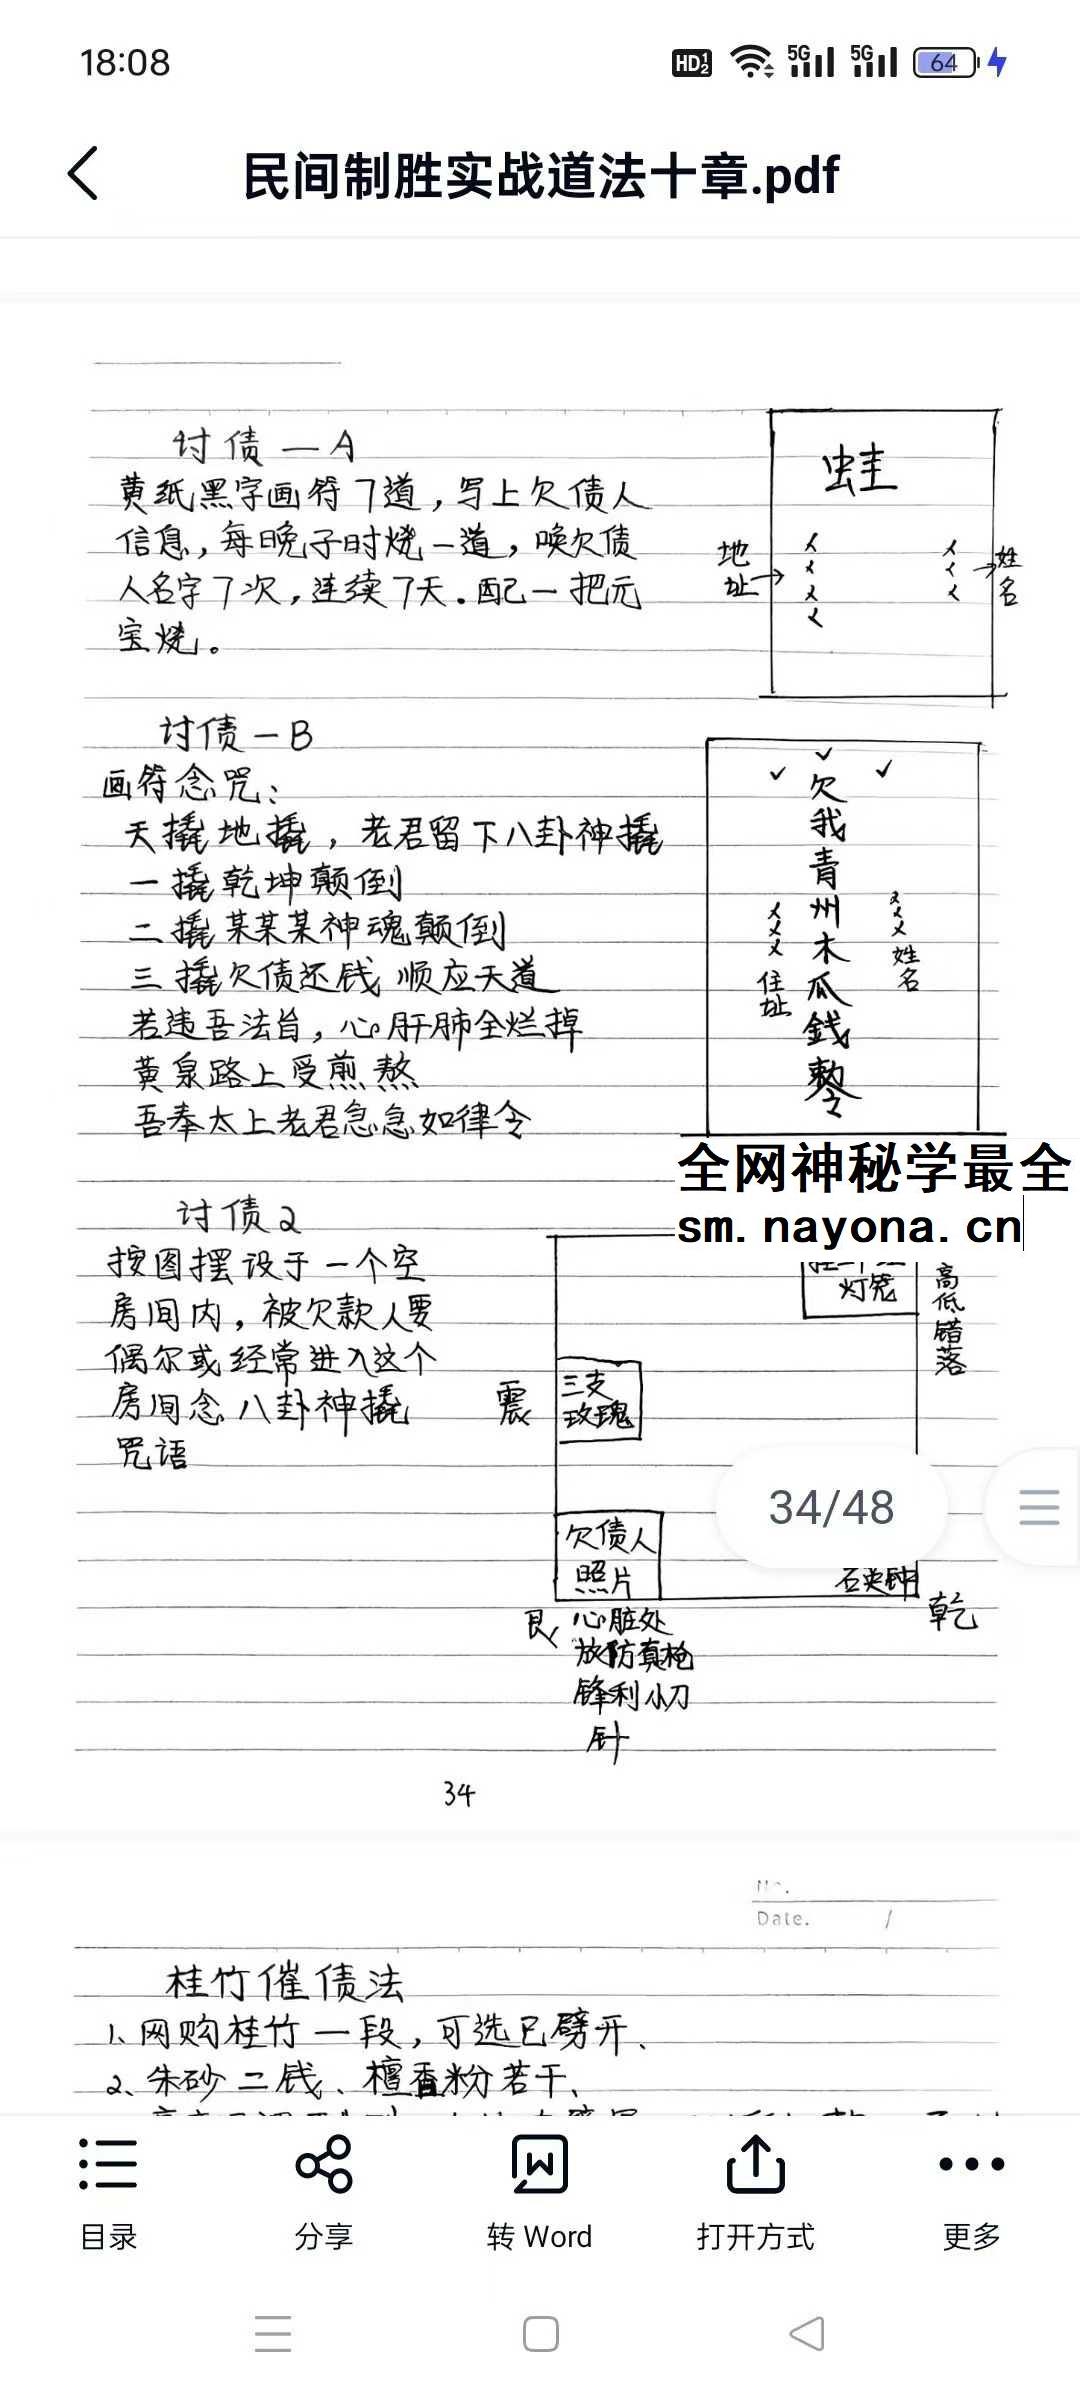 18:08
HD 1 2 5G 5G 64
民间制胜实战道法十章.pdf
讨债一A
黄纸黑字画符7道，写上欠债人
信息，每晚子时烧一道，唤欠债
人名字7次，连续7天。配一把元
宝烧。
蛙
地址→
→姓名
讨债一B
画符念咒：
天撬地撬，老君留下八卦神撬
一撬乾坤颠倒
二撬某某某神魂颠倒
三撬欠债还钱 顺应天道
若违吾法旨，心肝肺全烂掉
黄泉路上受煎熬
吾奉太上老君急急如律令
欠我青州木瓜錢敕令
住址
姓名
全网神秘学最全
sm.nayona.cn
讨债2
按图摆设于一个空
房间内，被欠款人要
偶尔或经常进入这个
房间念八卦神撬
咒语
灯笼
高低错落
震
三支
玫瑰
34/48
欠债人
照片
石英钟
乾
艮
心脏处
放防真枪
锋利小刀
针
34
No.
Date. /
桂竹催债法
1、网购桂竹一段，可选已劈开、
2、朱砂二钱、檀香粉若干、
目录
分享
转 Word
打开方式
更多